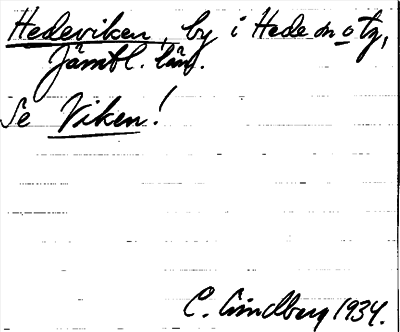 Hedeviken, by i Hede sn o tg,
Jämtl. län.
Se Viken!
C. Lindberg 1934.